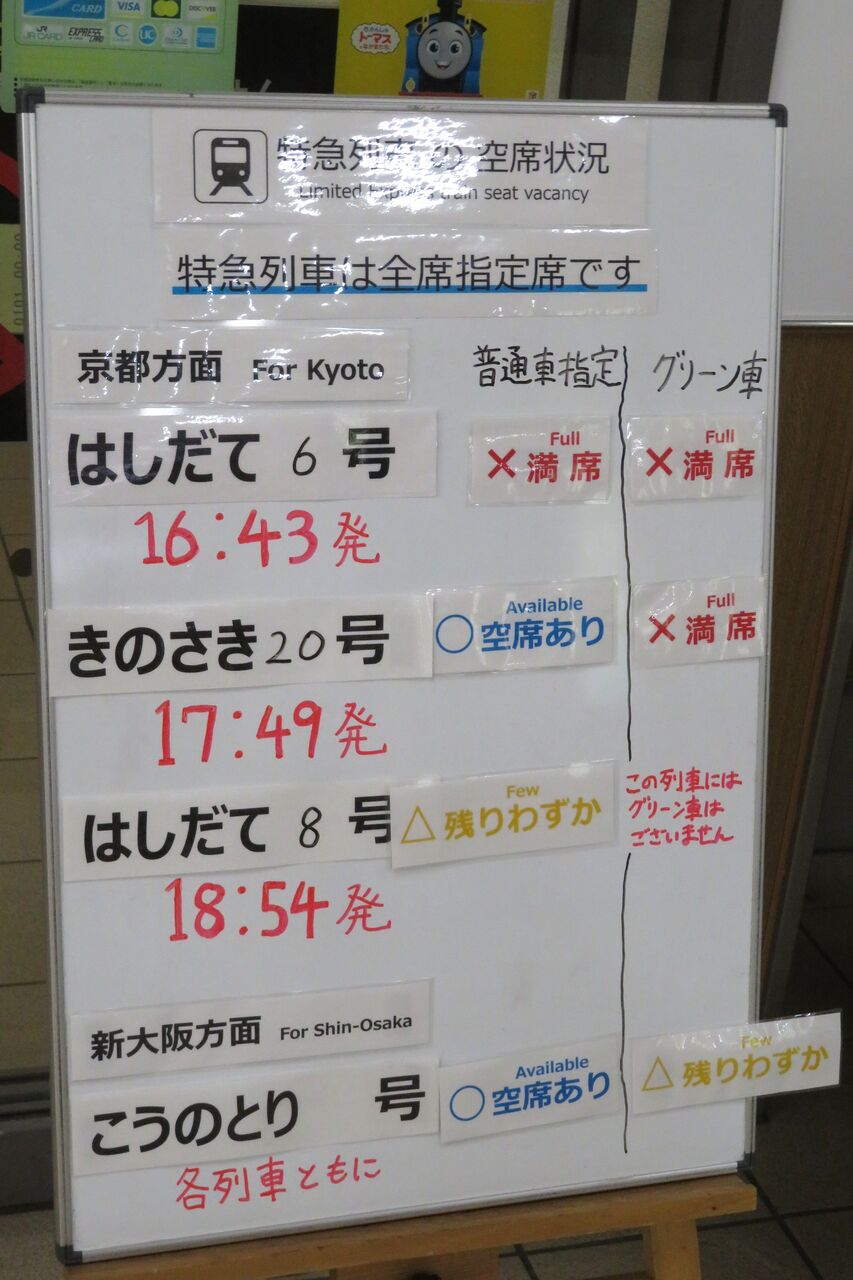 CARD
VISA
DISCOVER
JR CARD
EXPRESS CARD
UC
きかんしゃ
トーマス
なかまたち
特急列車の空席状況
Limited Express train seat vacancy
特急列車は全席指定席です
京都方面 For Kyoto 普通車指定 グリーン車
はしだて 6 号 Full ×満席 Full ×満席
16:43発
きのさき 20 号 Available ○空席あり Full ×満席
17:49発
はしだて 8 号 Few △残りわずか この列車には
グリーン車は
ございません
18:54発
新大阪方面 For Shin-Osaka
こうのとり 号 Available ○空席あり Few △残りわずか
各列車ともに